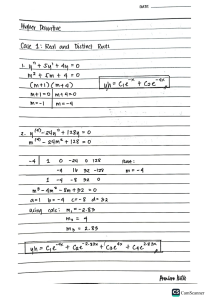 DATE:
Higher Derivative
Case 1: Real and Distinct Roots
1. y" + 5y' + 4y = 0
m² + 5m + 4 = 0
(m+1)(m+4)
m+1=0 | m+4=0
m=-1 | m=-4
yh = C₁e⁻ˣ + C₂e⁻⁴ˣ
2. y⁽⁴⁾ - 24y" + 128y = 0
m⁽⁴⁾ - 24m² + 128 = 0
-4 | 1 0 -24 0 128
-4 16 32 -128
1 -4 -8 32 0
m = -4
m³ - 4m² - 8m + 32 = 0
a=1 b=-4 c=-8 d=32
using calc: m₁ = -2.83
m₂ = 4
m₃ = 2.83
CS CamScanner